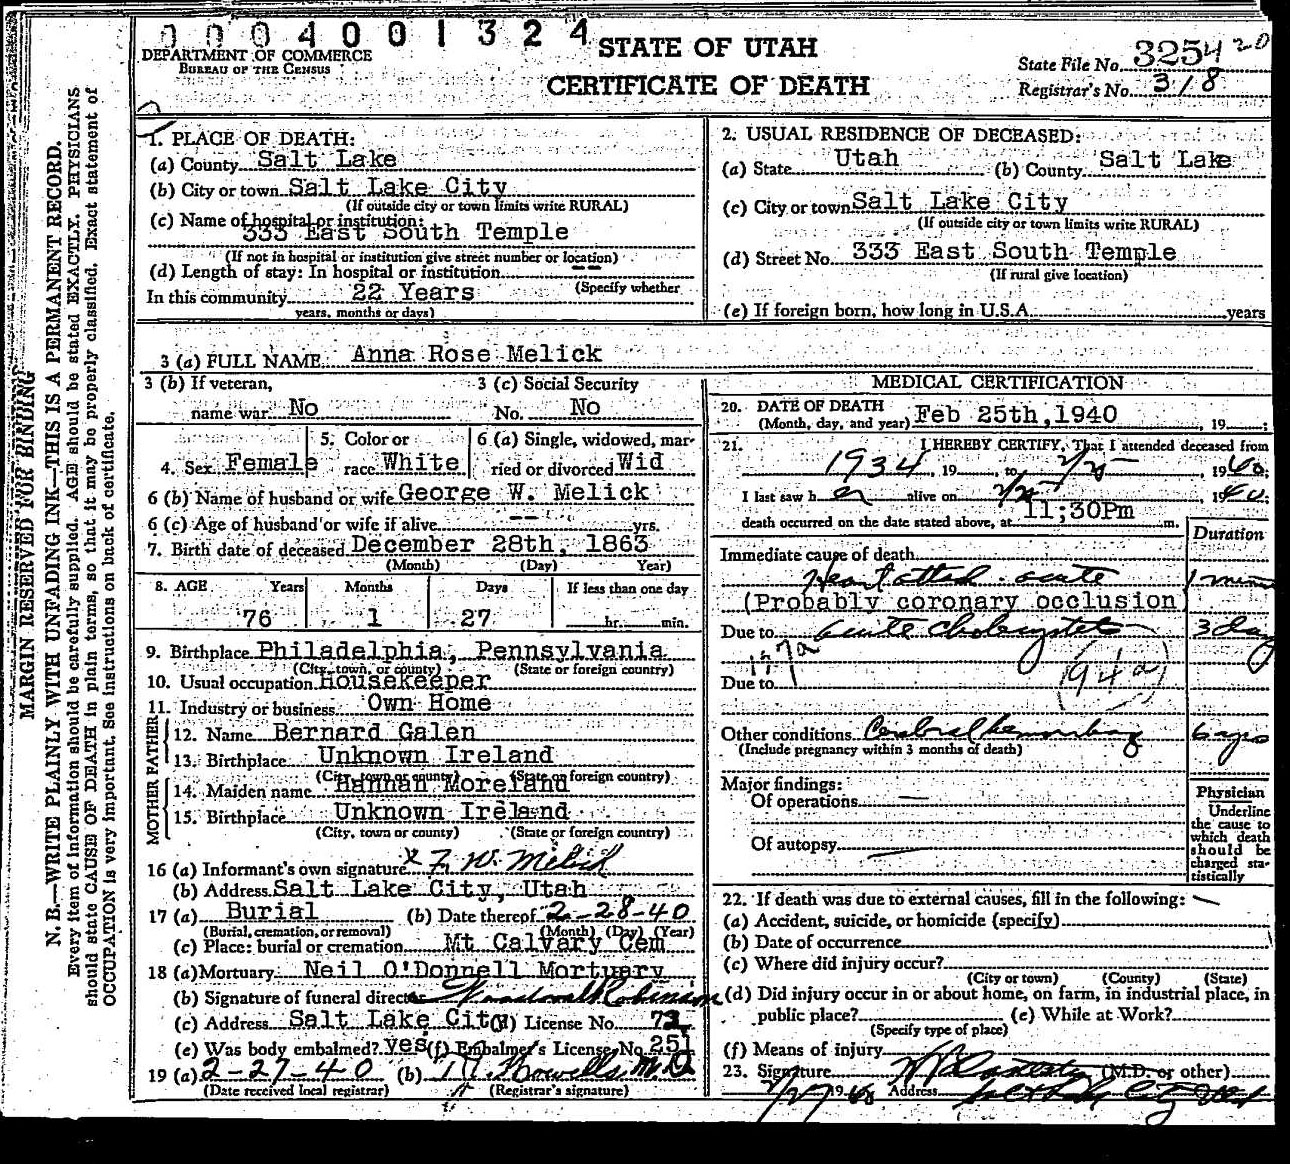 0004001324
DEPARTMENT OF COMMERCE
BUREAU OF THE CENSUS
STATE OF UTAH
CERTIFICATE OF DEATH
State File No. 3254 20
Registrar's No. 318
MARGIN RESERVED FOR BINDING
N. B.—WRITE PLAINLY WITH UNFADING INK—THIS IS A PERMANENT RECORD.
Every item of information should be carefully supplied. AGE should be stated EXACTLY. PHYSICIANS
should state CAUSE OF DEATH in plain terms, so that it may be properly classified. Exact statement of
OCCUPATION is very important. See instructions on back of certificate.
1. PLACE OF DEATH:
(a) County Salt Lake
(b) City or town Salt Lake City
(If outside city or town limits write RURAL)
(c) Name of hospital or institution:
333 East South Temple
(If not in hospital or institution give street number or location)
(d) Length of stay: In hospital or institution --
(Specify whether
In this community 22 Years
years, months or days)
2. USUAL RESIDENCE OF DECEASED:
(a) State Utah (b) County Salt Lake
(c) City or town Salt Lake City
(If outside city or town limits write RURAL)
(d) Street No. 333 East South Temple
(If rural give location)
(e) If foreign born, how long in U.S.A. years
3 (a) FULL NAME Anna Rose Melick
3 (b) If veteran, 3 (c) Social Security
name war No No. No
4. Sex Female 5. Color or race White 6 (a) Single, widowed, married or divorced Wid
6 (b) Name of husband or wife George W. Melick
6 (c) Age of husband or wife if alive -- yrs.
7. Birth date of deceased December 28th, 1863
(Month) (Day) Year)
8. AGE Years Months Days If less than one day
76 1 27 hr. min.
9. Birthplace Philadelphia, Pennsylvania
(City, town, or county) (State or foreign country)
10. Usual occupation Housekeeper
11. Industry or business Own Home
FATHER
12. Name Bernard Galen
13. Birthplace Unknown Ireland
(City, town or county) (State or foreign country)
MOTHER
14. Maiden name Hannah Moreland
15. Birthplace Unknown Ireland
(City, town or county) (State or foreign country)
16 (a) Informant's own signature x F. W. Melick
(b) Address Salt Lake City, Utah
17 (a) Burial (b) Date thereof 2-28-40
(Burial, cremation, or removal) (Month) (Day) (Year)
(c) Place: burial or cremation Mt Calvary Cem
18 (a) Mortuary Neil O'Donnell Mortuary
(b) Signature of funeral director Robinson
(c) Address Salt Lake City (d) License No. 72
(e) Was body embalmed? yes (f) Embalmer's License No. 251
19 (a) 2-27-40 (b) Howells M.D
(Date received local registrar) (Registrar's signature)
MEDICAL CERTIFICATION
20. DATE OF DEATH
(Month, day, and year) Feb 25th, 1940, 19 ;
21. I HEREBY CERTIFY, That I attended deceased from
1934, 19 , to 2/25, 1940;
I last saw h er alive on 2/25, 1940;
death occurred on the date stated above, at 11;30Pm m.
Duration
Immediate cause of death
Heart attack - acute 1 min
(Probably coronary occlusion)
Due to acute cholecystitis 3 days
127a
94a
Due to
Other conditions Cerebral hemorrhage 6 ago
(Include pregnancy within 3 months of death)
Major findings:
Of operations —
Of autopsy —
Physician
Underline
the cause to
which death
should be
charged sta-
tistically
22. If death was due to external causes, fill in the following: —
(a) Accident, suicide, or homicide (specify)
(b) Date of occurrence
(c) Where did injury occur?
(City or town) (County) (State)
(d) Did injury occur in or about home, on farm, in industrial place, in
public place? (e) While at Work?
(Specify type of place)
(f) Means of injury
23. Signature (M.D. or other)
2/27 1940 Address Salt Lake City Utah